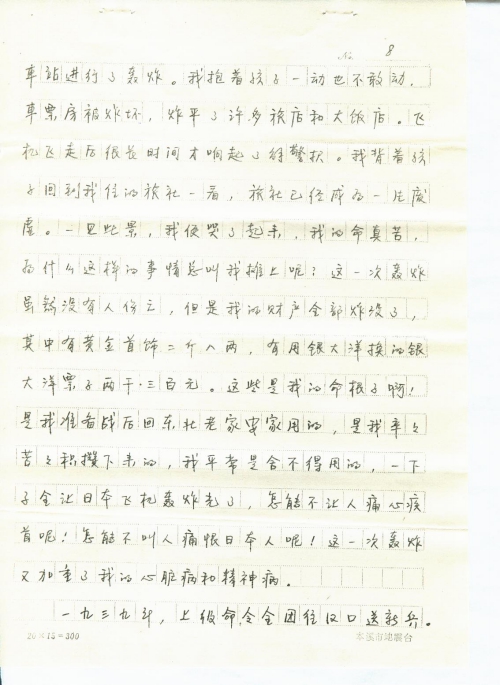 No. 8
车站进行了轰炸。我抱着孩子一动也不敢动.
车票房被炸坏，炸平了许多旅店和大饭店。飞
机飞走后很长时间才响起了解警报。我背着孩
子回到我住的旅社一看，旅社已经成为一片废
虚。一见此景，我便哭了起来，我的命真苦，
为什么这样的事情总叫我摊上呢？这一次轰炸
虽然没有人伤亡，但是我的财产全部炸没了，
其中有黄金首饰二斤八两，有用银大洋换的银
大洋票子两千·三百元。这些是我的命根子啊！
是我准备战后回东北老家安家用的，是我辛々
苦々积攒下来的，我平常是舍不得用的，一下
子全让日本飞机轰炸光了，怎能不让人痛心疾
首呢！怎能不叫人痛恨日本人呢！这一次轰炸
又加重了我的心脏病和精神病。
一九三九年，上级命令全团往汉口送新兵。
20×15=300 本溪市地震台